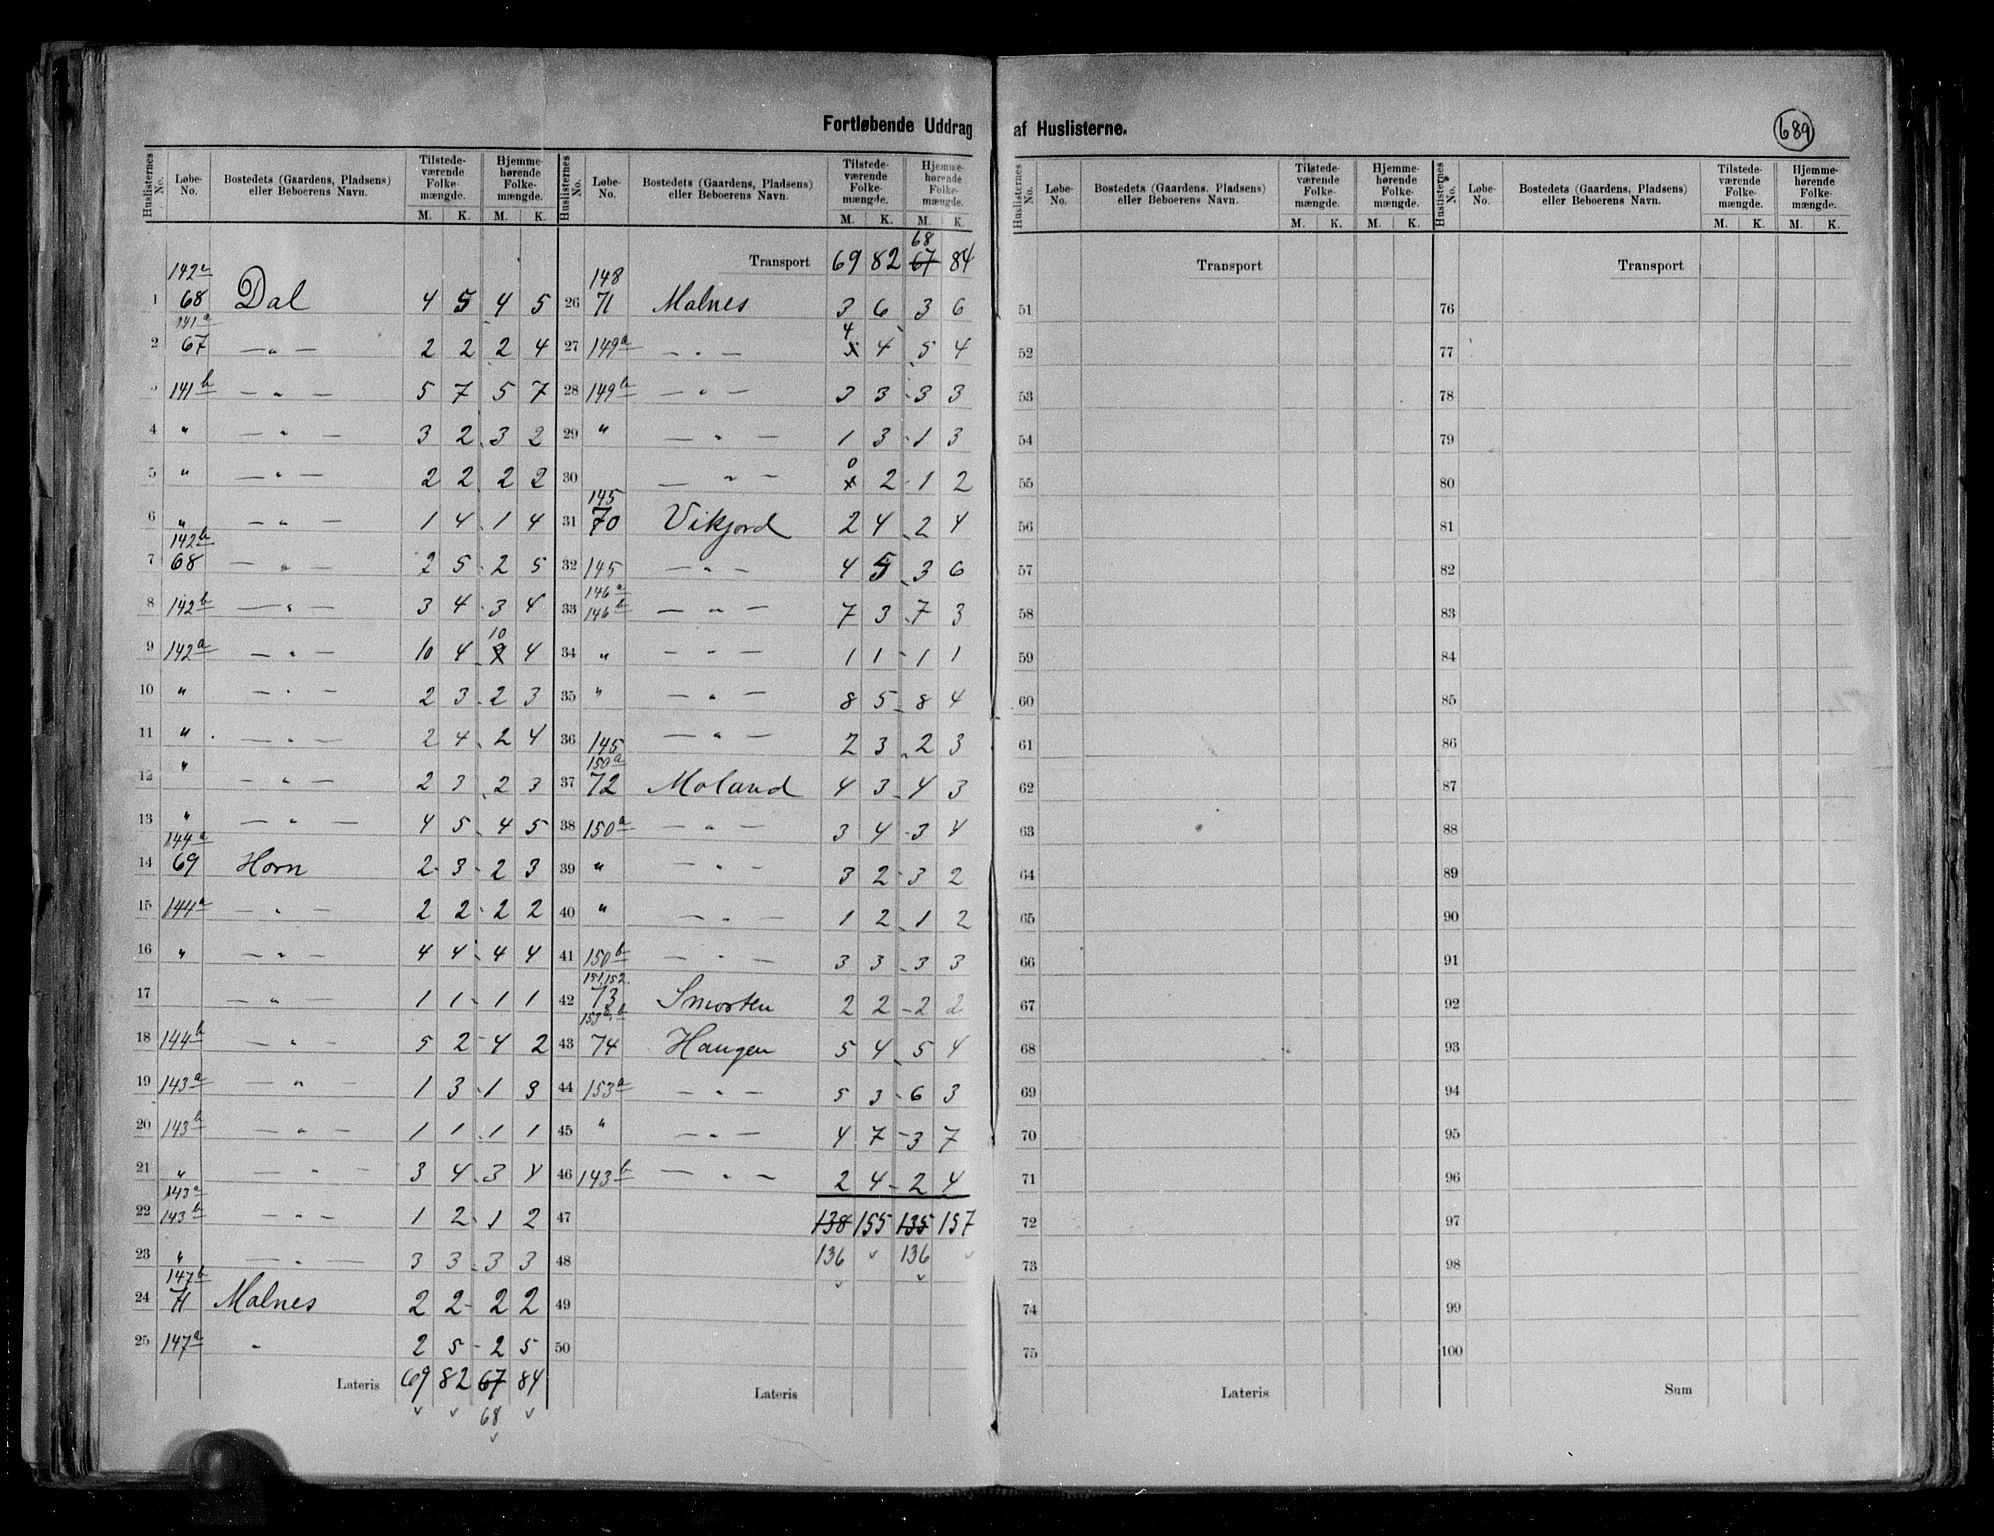 Fortløbende Uddrag af Huslisterne.
689
Huslisternes No. Løbe-No. Bostedets (Gaardens, Pladsens) eller Beboerens Navn. Tilstede-værende Folke-mængde. M. K. Hjemme-hørende Folke-mængde. M. K.
142a
1 68 Dal 4 5 4 5
141a
2 67 — " — 2 2 2 4
3 141b — " — 5 7 5 7
4 " — " — 3 2 3 2
5 " — " — 2 2 2 2
6 " — " — 1 4 1 4
142b
7 68 — " — 2 5 2 5
8 142b — " — 3 4 3 4
10
9 142a — " — 10 4 9 4
10 " — " — 2 3 2 3
11 " — " — 2 4 2 4
12 " — " — 2 3 2 3
13 " — " — 4 5 4 5
144a
14 69 Horn 2 3 2 3
15 144a — " — 2 2 2 2
16 " — " — 4 4 4 4
17 — " — 1 1 1 1
18 144b — " — 5 2 4 2
19 143a — " — 1 3 1 3
20 143b — " — 1 1 1 1
21 " — " — 3 4 3 4
143a
22 143b — " — 1 2 1 2
23 " — " — 3 3 3 3
147b
24 71 Malnes 2 2 2 2
25 147a " 2 5 2 5
Lateris 69 82 67 84
68
Huslisternes No. Løbe-No. Bostedets (Gaardens, Pladsens) eller Beboerens Navn. Tilstede-værende Folke-mængde. M. K. Hjemme-hørende Folke-mængde. M. K.
68
Transport 69 82 67 84
148
26 71 Malnes 3 6 3 6
4
27 149a — " — 4 5 4
28 149b — " — 3 3 3 3
29 " — " — 1 3 1 3
0
30 — " — 2 1 2
145
31 70 Vikjord 2 4 2 4
32 145 — " — 4 5 3 6
146a
33 146b — " — 7 3 7 3
34 " — " — 1 1 1 1
35 " — " — 8 5 8 4
36 145 — " — 2 3 2 3
150a
37 72 Moland 4 3 4 3
38 150a — " — 3 4 3 4
39 " — " — 3 2 3 2
40 " — " — 1 2 1 2
41 150b — " — 3 3 3 3
151, 152.
42 73 Smorten 2 2 2 2
43 74 Haugen 5 4 5 4
44 153a — " — 5 3 6 3
45 " — " — 4 7 3 7
46 143b — " — 2 4 2 4
47 138 155 135 157
48 136 136
49
50
Lateris
Huslisternes No. Løbe-No. Bostedets (Gaardens, Pladsens) eller Beboerens Navn. Tilstede-værende Folke-mængde. M. K. Hjemme-hørende Folke-mængde. M. K.
Transport
51
52
53
54
55
56
57
58
59
60
61
62
63
64
65
66
67
68
69
70
71
72
73
74
75
Lateris
Huslisternes No. Løbe-No. Bostedets (Gaardens, Pladsens) eller Beboerens Navn. Tilstede-værende Folke-mængde. M. K. Hjemme-hørende Folke-mængde. M. K.
Transport
76
77
78
79
80
81
82
83
84
85
86
87
88
89
90
91
92
93
94
95
96
97
98
99
100
Sum